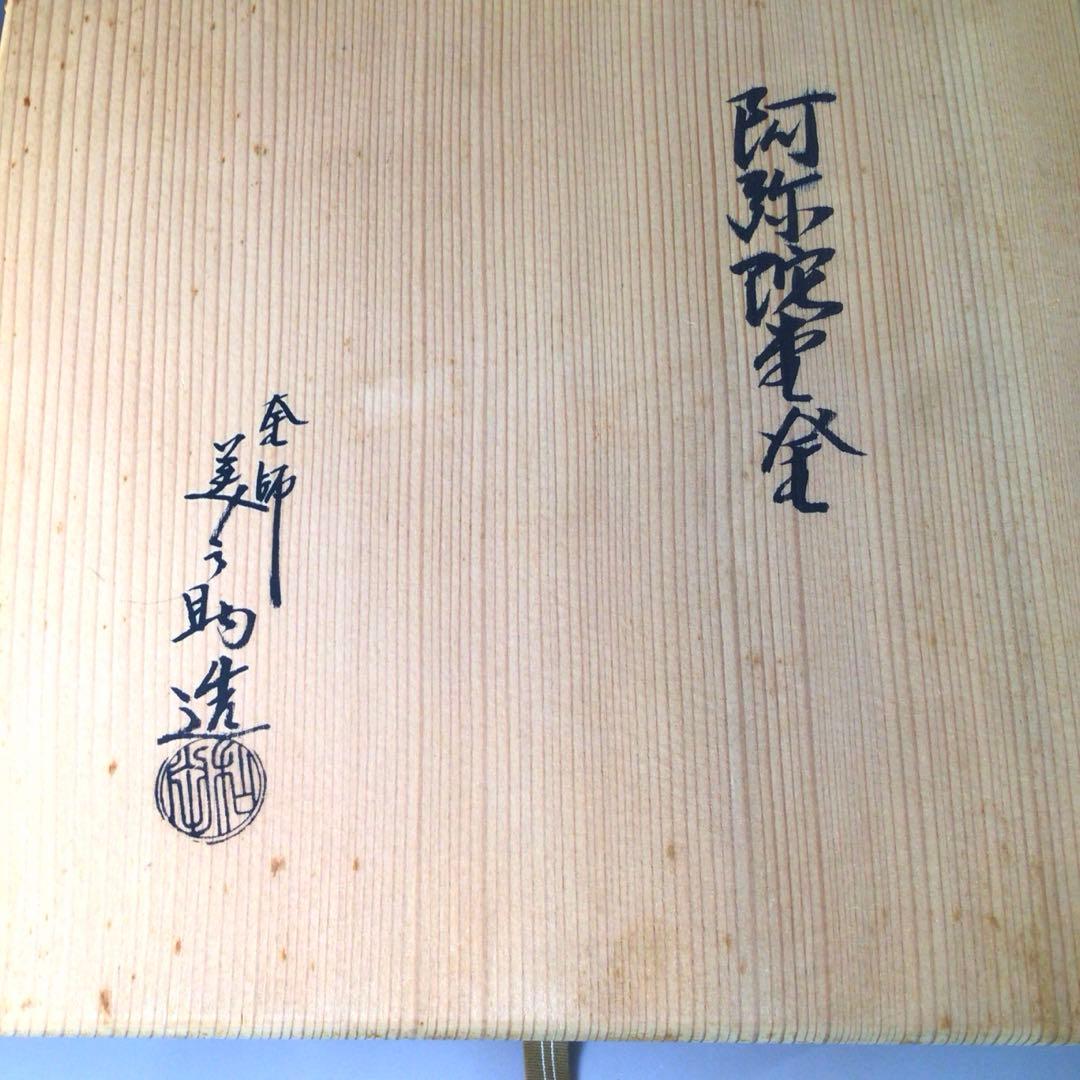 阿弥陀堂釜
釜師
美之助造